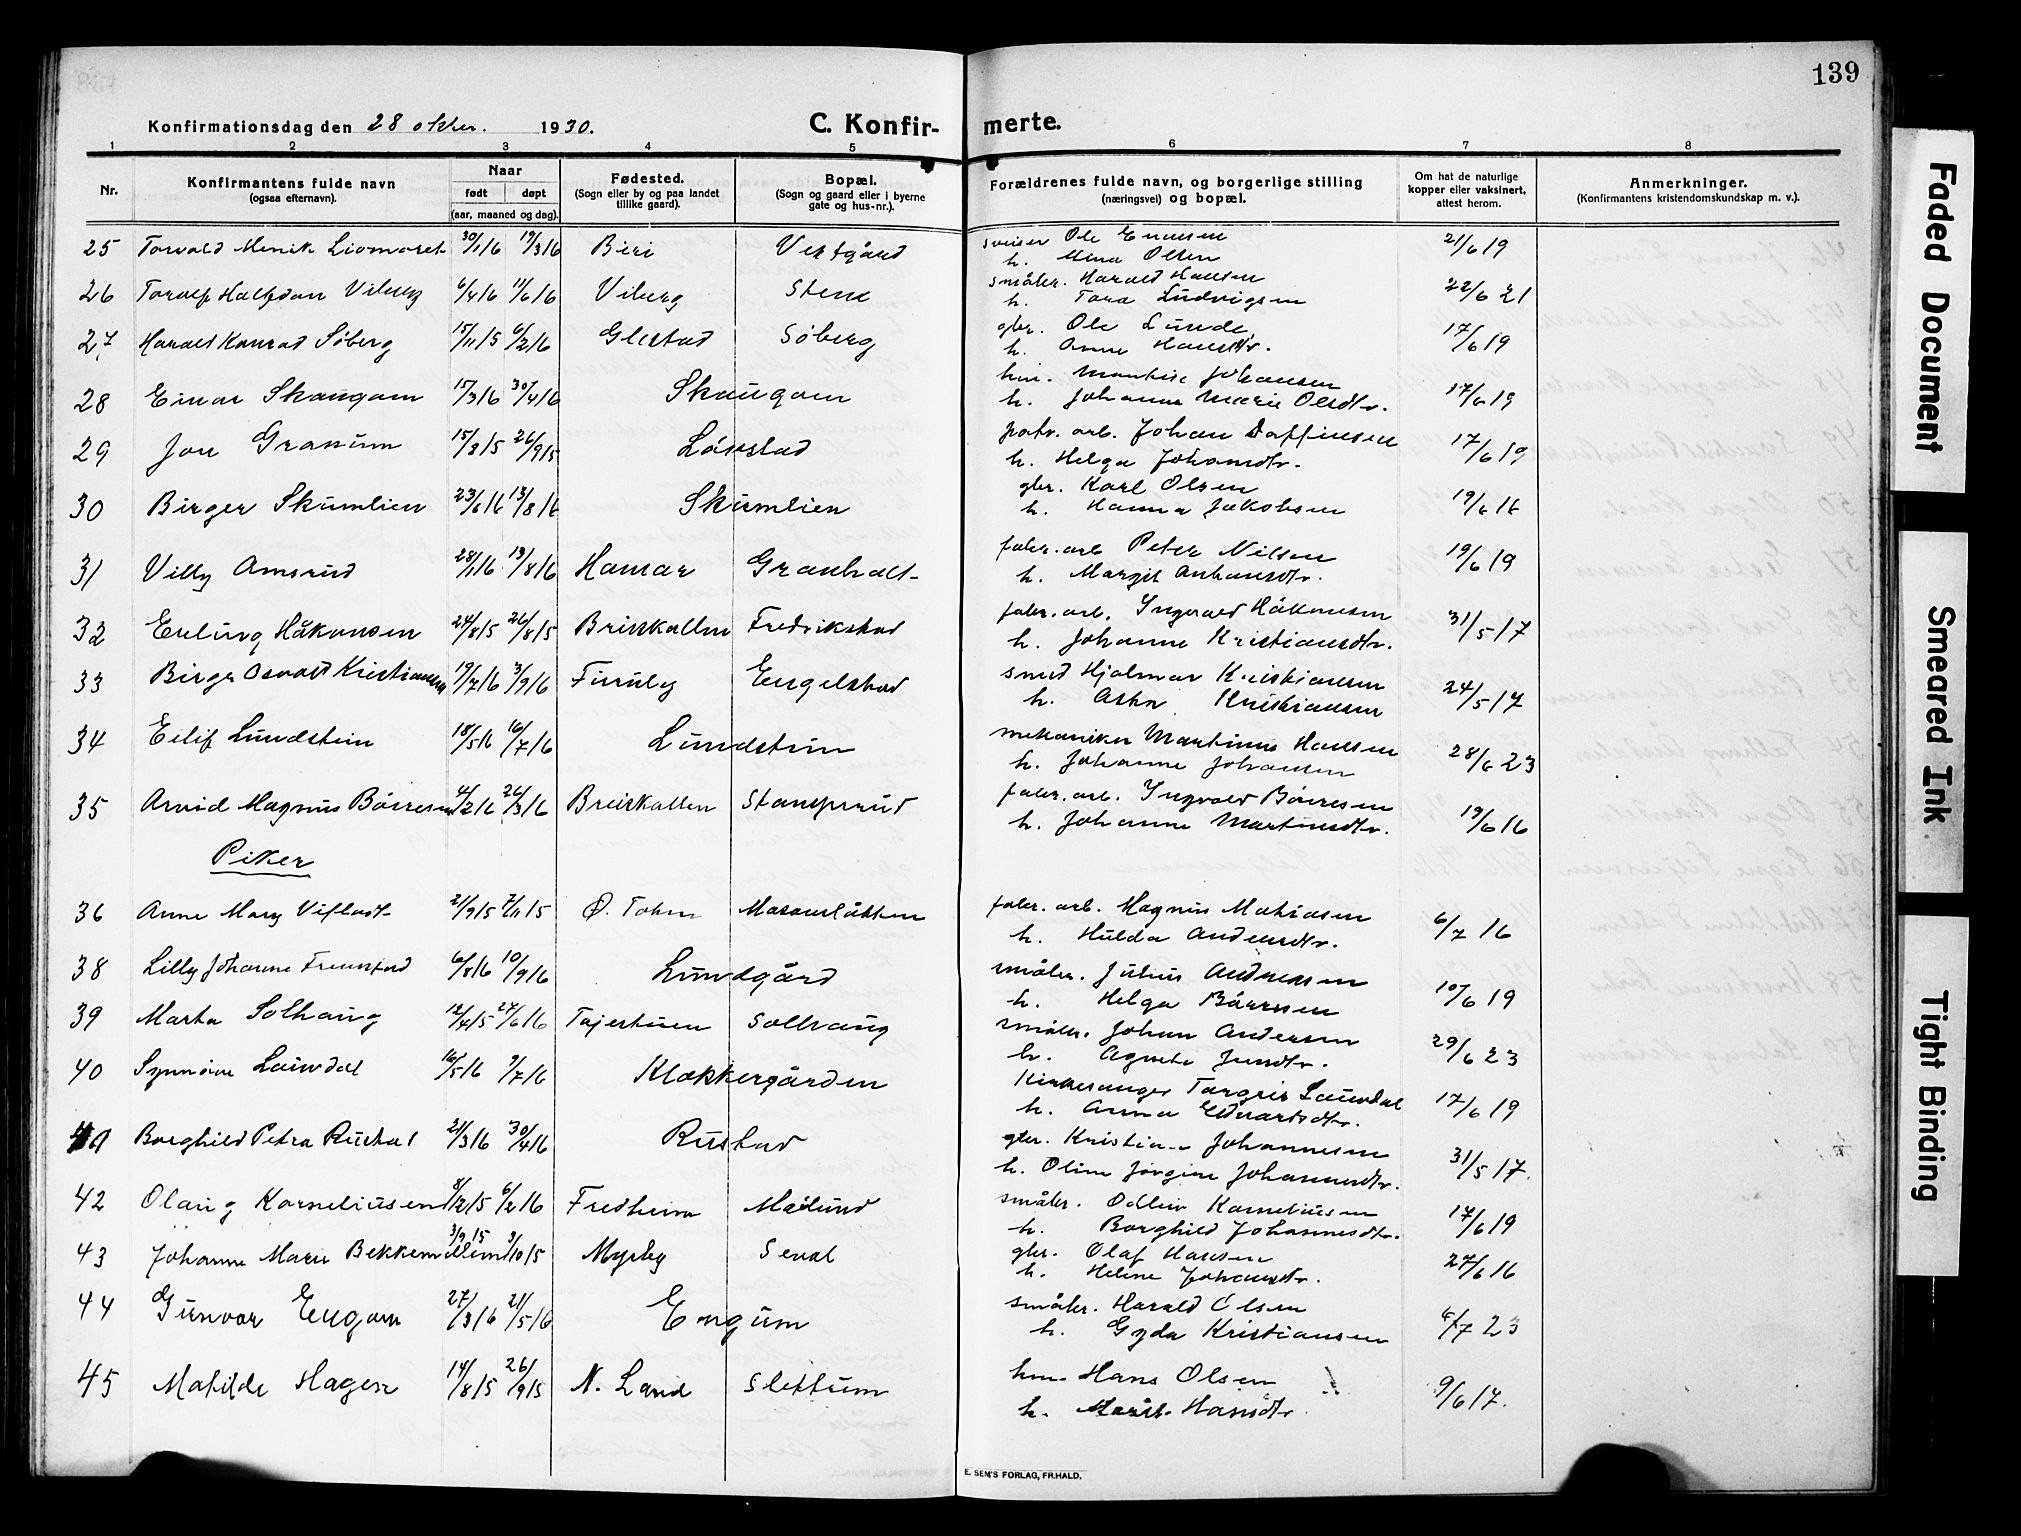 139
Konfirmationsdag den 28 oktbr. 1930.
C. Konfir- merte.
1 2 3 4 5 6 7 8
Nr.
Konfirmantens fulde navn
(ogsaa efternavn).
Naar
født døpt
(aar, maaned og dag).
Fødested.
(Sogn eller by og paa landet
tillike gaard).
Bopæl.
(Sogn og gaard eller i byerne
gate og hus-nr.).
Forældrenes fulde navn, og borgerlige stilling
(næringsvei) og bopæl.
Om hat de naturlige
kopper eller vaksinert,
attest herom.
Anmerkninger.
(Konfirmantens kristendomskundskap m. v.).
25 Torvald Menik 30/1 16 19/3 16 Biri sveiser Ole 21/6 19
h. Mina Olsen
26 Toralf Halfdan Viberg 6/4 16 11/6 16 Viberg Stene småbr. Harald Hansen 22/6 21
h. Tora Ludvigsen
27 Harald Konrad Søberg 15/11 15 6/2 16 Glestad Søberg gbr. Ole Lunde 17/6 19
h. Anne Hansdtr.
28 Einar Skaugom 15/3 16 30/4 16 Skaugom hm. Johansen 17/6 19
h. Johanne Marie Olsdtr.
29 Jon Granum 15/8 15 26/9 15 Lønstad potv. arb. Johan Daffinsen 17/6 19
h. Helga Johansdtr.
30 Birger Skumlien 23/6 16 13/8 16 Skumlien gbr. Karl Olsen 19/6 16
h. Hanna Jakobsen
31 Villy Amsrud 28/1 16 13/8 16 Hamar Granholt fabr. arb Peter Nilsen 19/6 19
h. Margit
32 Erling Håkonsen 24/8 15 26/8 15 Breiskallen Fredrikstad fabr. arb. Ingvald Håkonsen 31/5 17
h. Johanne Kristiansdtr.
33 Birger Osvald Kristiansen 19/7 16 3/9 16 Furuly Engelstad smed Hjalmar Kristiansen 24/5 17
h. Asta Kristiansen
34 Eilif Lundstein 18/5 16 16/7 16 Lundstein mekaniker Martinus Hansen 28/6 23
h. Johanne Johansen
35 Arvid Magnus Børresen 4/2 16 26/3 16 Breiskallen Stamprud fabr. arb. Ingvald Børresen 19/6 16
h. Johanne Martinsdtr.
Piker
36 Anne Mary Viflat 21/9 15 7/11 15 Ø. Toten Masarsløkken fabr. arb. Magnus Matiasen 6/7 16
h. Hulda Andersdtr.
38 Lilly Johanne 6/8 16 10/9 16 Lundgård småbr. Julius Andresen 10/6 19
h. Helga Børresen
39 Marta Solhaug 12/4 15 27/6 16 Tajestuen Solhaug småbr. Johan Andersen 29/6 23
h. Agnete
40 Synnøve Laundal 16/5 16 9/7 16 Klokkergården Kirkesanger Targeir Laundal 17/6 19
h. Anna Edvartsdtr.
41 Borghild Petra Rustad 21/3 16 30/4 16 Rustad gbr. Kristian Johannesen 31/5 17.
h. Oline Jørgine Johannesdtr.
42 Olaug Korneliusen 8/12 15 6/2 16 Fredheim Mælund småbr. Odleiv Korneliusen 17/6 19
h. Borghild Johannesdtr.
43 Johanne Marie Bekkemellem 3/9 15 3/10 15 Myrby Seval gbr. Olaf Hansen 27/6 16
h. Helene Johansdtr.
44 Gunvor Engom 27/3 16 21/5 16 Engum småbr. Harald Olsen 6/7 23
h. Gyda Kristiansen
45 Matilde Hagen 14/8 15 26/9 15 N. Land Slettum hm. Hans Olsen 9/6 17.
h. Marit Hansdtr.
E. SEM'S FORLAG, FR.HALD.
Faded Document
Smeared Ink
Tight Binding